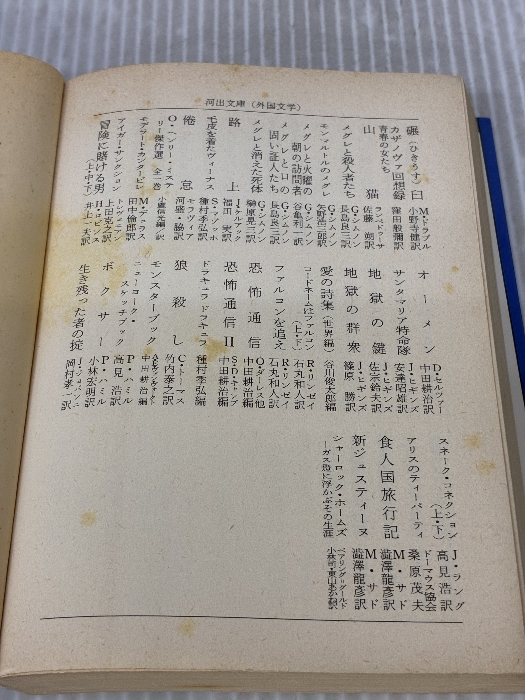 河出文庫〈外国文学〉
碾(ひきうす)臼 M・ドラブル 小野寺健訳
カザノヴァ回想録 青春の女たち 窪田般彌訳
山猫 ランペドゥーサ 佐藤朔訳
メグレと殺人者たち G・シムノン 長島良三訳
モンマルトルのメグレ G・シムノン 矢野浩三郎訳
メグレと火曜の朝の訪問者 G・シムノン 谷亀利一訳
メグレと口の固い証人たち G・シムノン 長島良三訳
メグレと消えた死体 G・シムノン 榊原晃三訳
路上 J・ケルアック 福田実訳
毛皮を着たヴィーナス S・マゾッホ 種村季弘訳
倦怠 モラヴィア 河盛・脇訳
O・ヘンリー・ミステリー傑作選 全一巻 小鷹信光編・訳
モデラート・カンタービレ M・デュラス 田中倫郎訳
アイガー・サンクション トレヴェニアン 上田克之訳
冒険に賭ける男(上・中・下) H・ロビンズ 井上一夫訳
オーメン D・セルツァー 中田耕治訳
サンタ・マリア特命隊 J・ヒギンズ 安達昭雄訳
地獄の鍵 J・ヒギンズ 佐宗鈴夫訳
地獄の群衆 J・ヒギンズ 篠原勝訳
愛の詩集(世界編) 谷川俊太郎編
コードネームはファルコン(上・下) R・リンゼイ 石丸和人訳
ファルコンを追え R・リンゼイ 石丸和人訳
恐怖通信 O・ダーレス他 中田耕治編
恐怖通信II S・D・キャンプ 中田耕治編
ドラキュラドラキュラ 種村季弘編
狼殺し C・トーマス 竹内泰之訳
モンスターブック 中田耕治編
ニューヨーク・スケッチブック P・ハミル 高見浩訳
ボクサー P・ハミル 小林宏明訳
生き残った者の掟 J・ジョバンニ 岡村孝一訳
スネーク・コネクション(上・下) J・ラング 高見浩訳
アリスのティーパーティ ドーマウス協会 桑原茂夫
食人国旅行記 M・サド 澁澤龍彦訳
新ジュスティーヌ M・サド 澁澤龍彦訳
シャーロック・ホームズ ―ガス燈に浮かぶその生涯 ベアリング=グールド 小林司・東山あかね訳